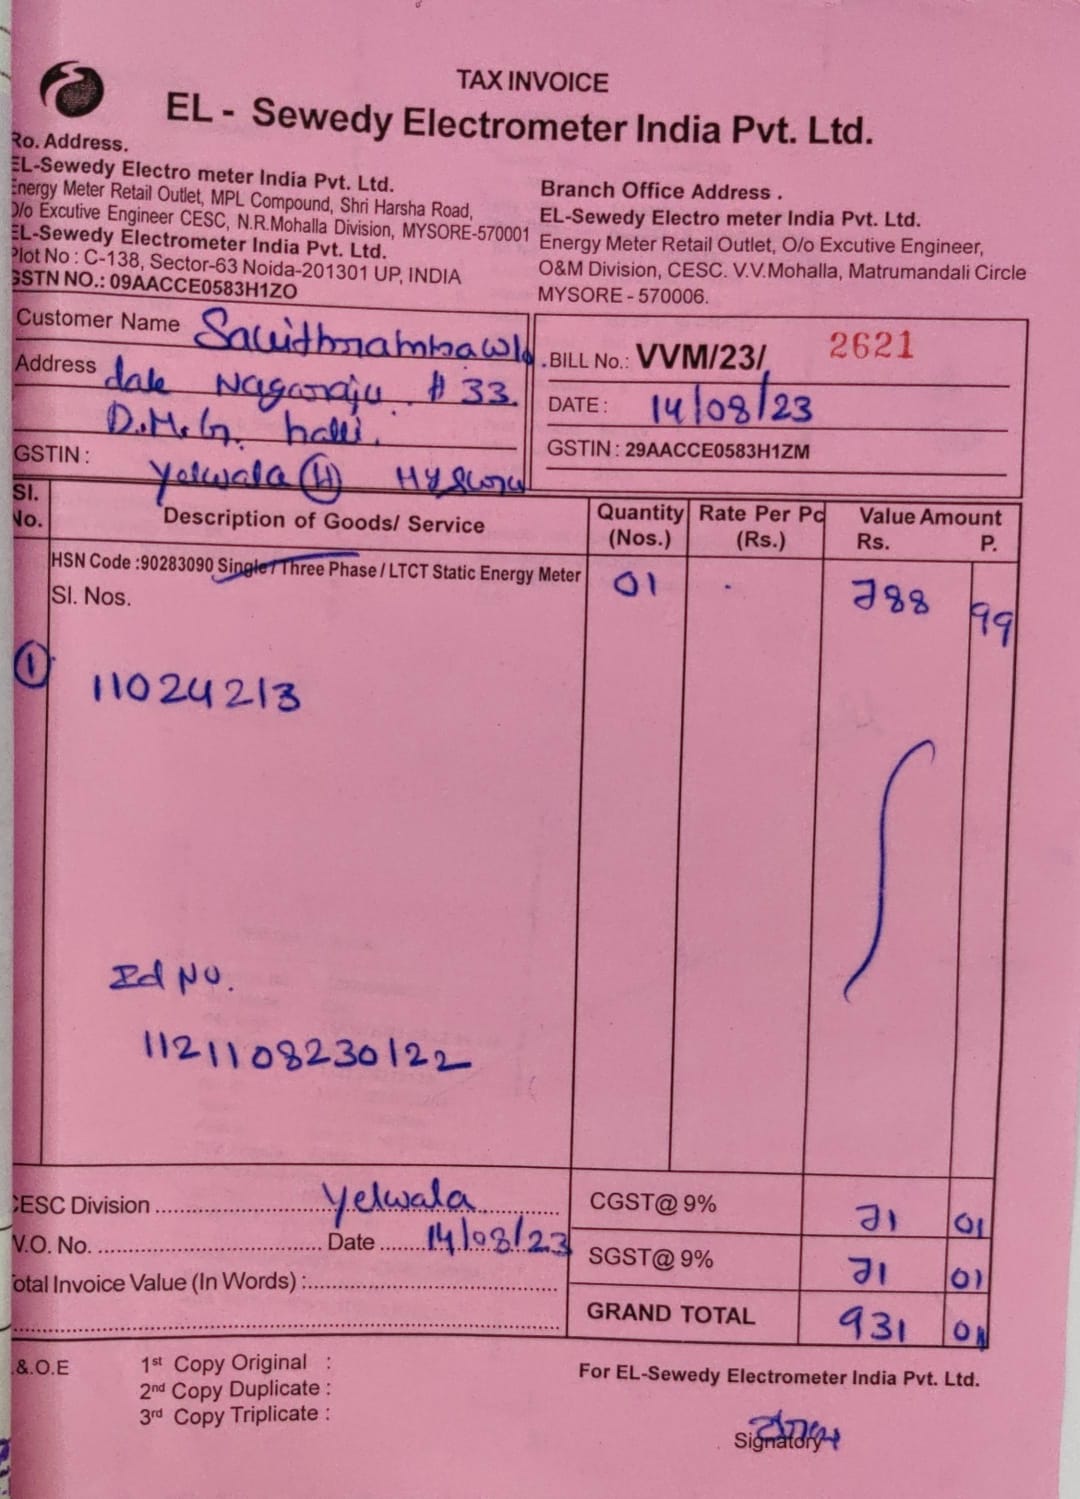 TAX INVOICE
EL - Sewedy Electrometer India Pvt. Ltd.
Ro. Address.
EL-Sewedy Electro meter India Pvt. Ltd.
Energy Meter Retail Outlet, MPL Compound, Shri Harsha Road,
O/o Excutive Engineer CESC, N.R.Mohalla Division, MYSORE-570001
EL-Sewedy Electrometer India Pvt. Ltd.
Plot No : C-138, Sector-63 Noida-201301 UP, INDIA
GSTN NO.: 09AACCE0583H1ZO
Branch Office Address .
EL-Sewedy Electro meter India Pvt. Ltd.
Energy Meter Retail Outlet, O/o Excutive Engineer,
O&M Division, CESC. V.V.Mohalla, Matrumandali Circle
MYSORE - 570006.
Customer Name
Address date Nagaraju. # 33.
D.M.G. halli.
GSTIN :
Yelwala (H) Mysore
.BILL No.: VVM/23/ 2621
DATE : 14/08/23
GSTIN : 29AACCE0583H1ZM
Sl. No. Description of Goods/ Service Quantity (Nos.) Rate Per Pc (Rs.) Value Amount Rs. P.
HSN Code :90283090 Single / Three Phase / LTCT Static Energy Meter 01 788 99
Sl. Nos.
1 11024213
Id No.
1121108230122
CESC Division Yelwala
V.O. No. Date 14/08/23
Total Invoice Value (In Words) :
CGST@ 9% 71 01
SGST@ 9% 71 01
GRAND TOTAL 931 01
.&.O.E
1st Copy Original :
2nd Copy Duplicate :
3rd Copy Triplicate :
For EL-Sewedy Electrometer India Pvt. Ltd.
Signatory